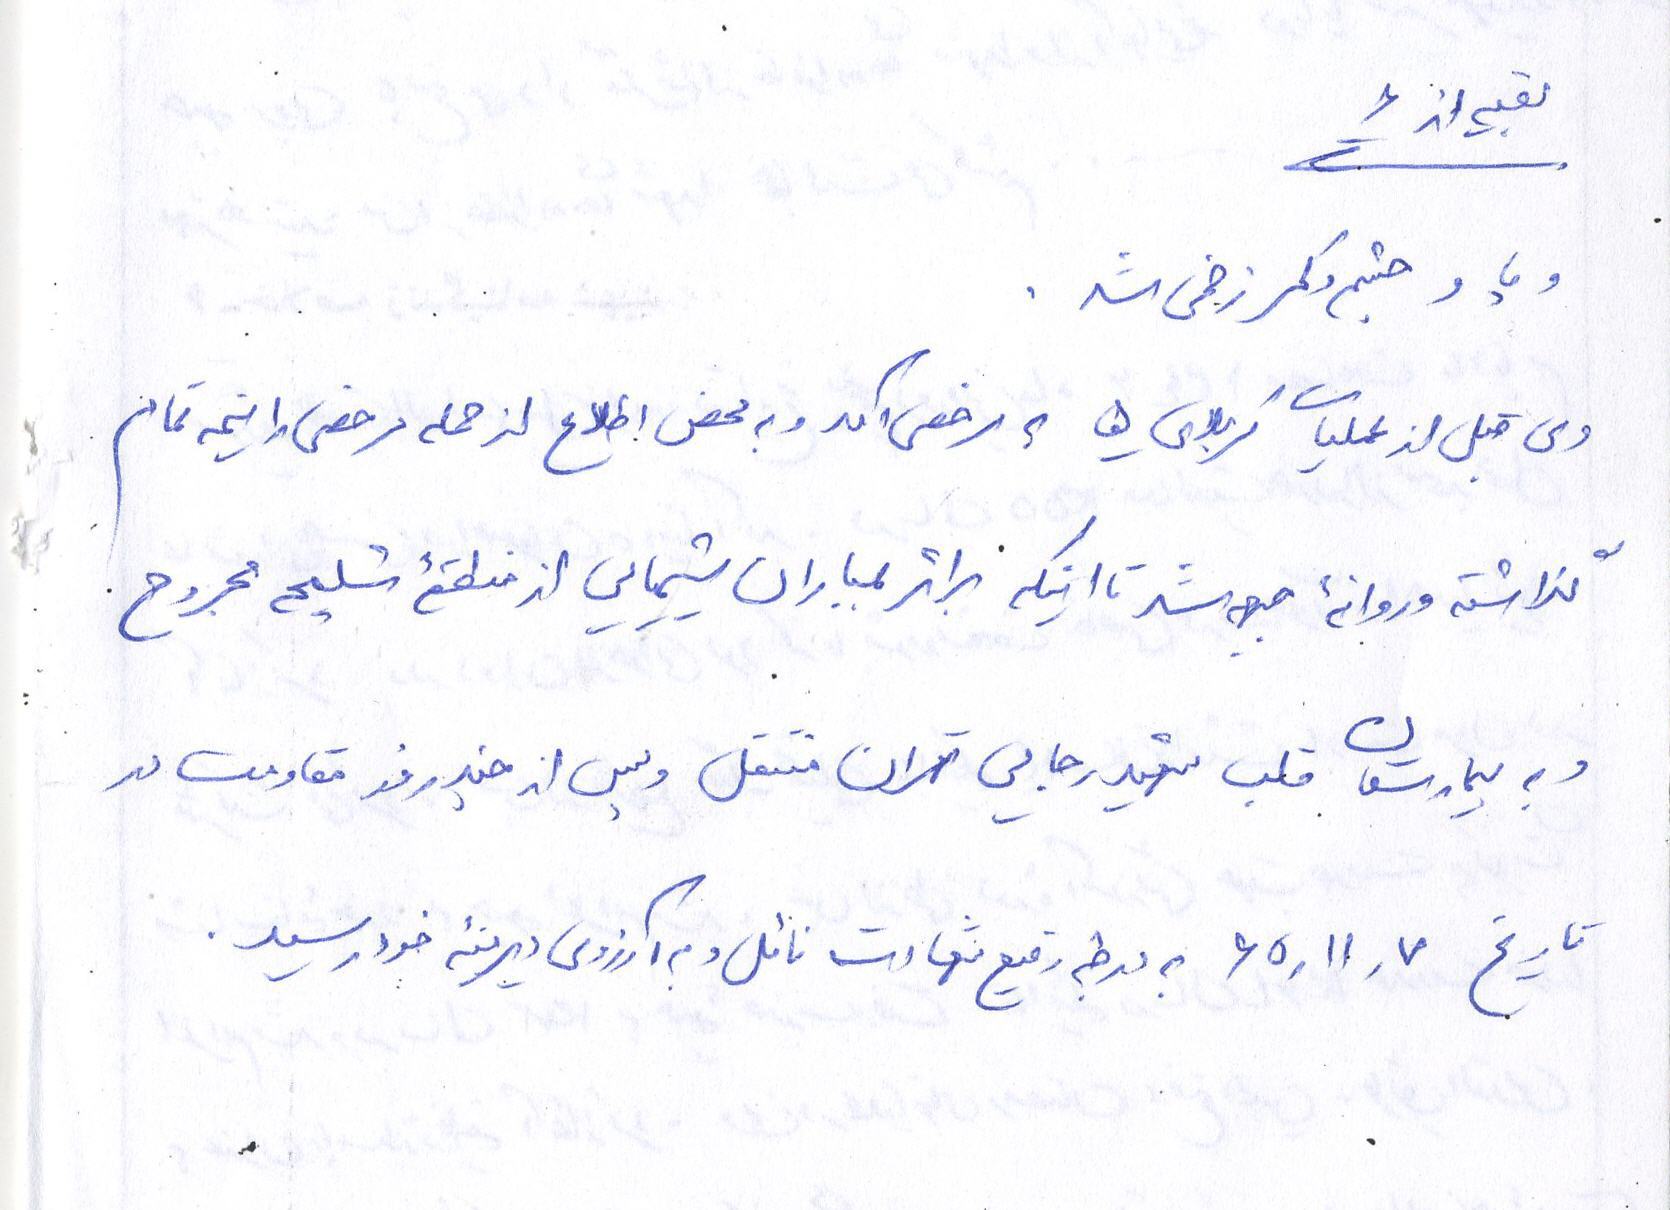 بقیه از ۶
و پا و چشم و کمر زخمی شد .
وی قبل از عملیات کربلای ۵ به مرخصی آمد و به محض اطلاع از حمله مرخصی را نیمه تمام
گذاشته و روانهٔ جبهه شد تا اینکه براثر بمباران شیمیایی از منطقهٔ شلمچه مجروح
و به بیمارستان قلب شهید رجایی تهران منتقل و پس از چند روز مقاومت در
تاریخ ۷ر۱۱ر۶۵ به درجه رفیع شهادت نائل و به آرزوی دیرینه خود رسید .